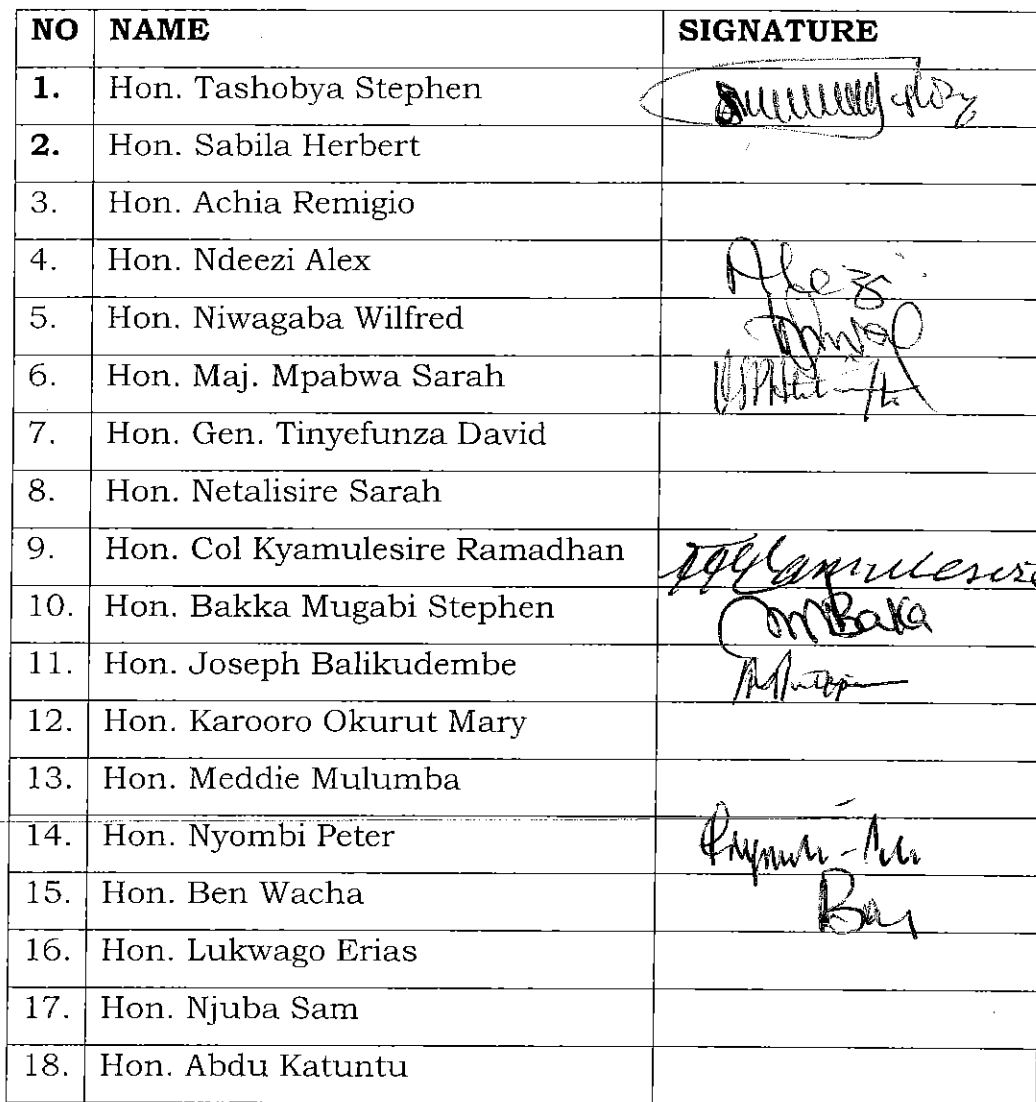 NO NAME SIGNATURE
1. Hon. Tashobya Stephen
2. Hon. Sabila Herbert
3. Hon. Achia Remigio
4. Hon. Ndeezi Alex
5. Hon. Niwagaba Wilfred
6. Hon. Maj. Mpabwa Sarah
7. Hon. Gen. Tinyefunza David
8. Hon. Netalisire Sarah
9. Hon. Col Kyamulesire Ramadhan
10. Hon. Bakka Mugabi Stephen
11. Hon. Joseph Balikudembe
12. Hon. Karooro Okurut Mary
13. Hon. Meddie Mulumba
14. Hon. Nyombi Peter
15. Hon. Ben Wacha
16. Hon. Lukwago Erias
17. Hon. Njuba Sam
18. Hon. Abdu Katuntu